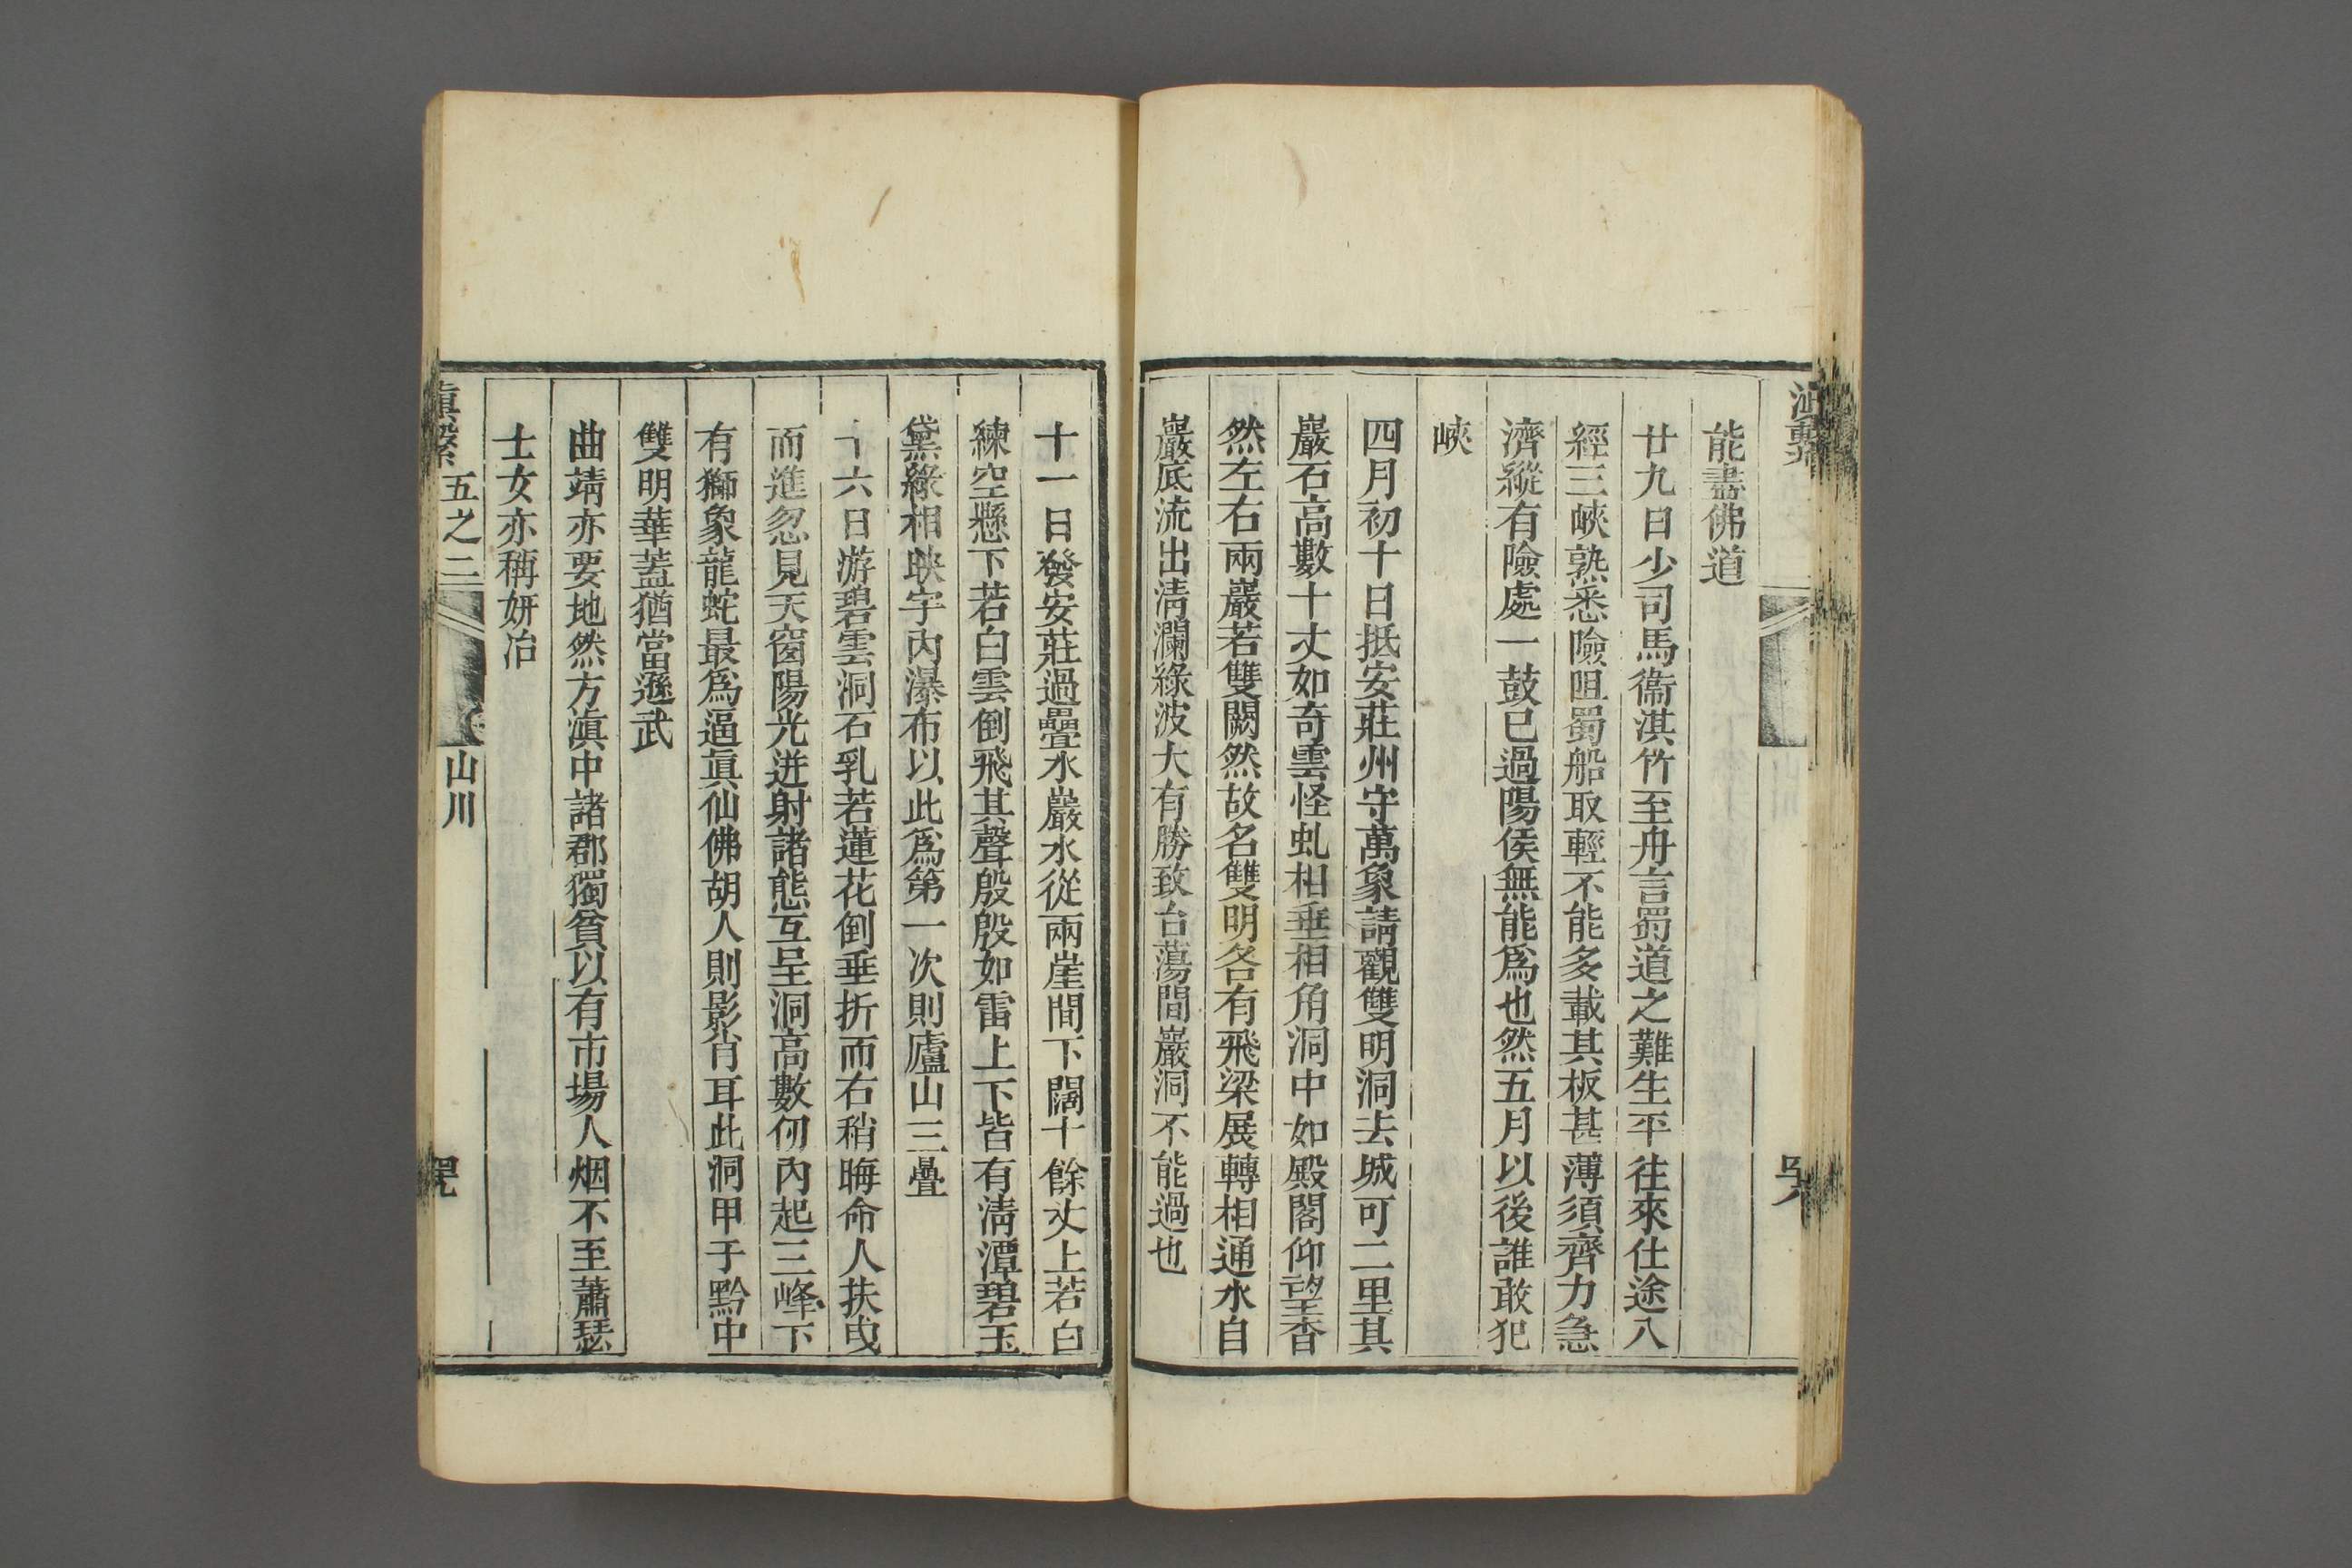 能盡佛道
廿九日少司馬衞淇竹至舟言蜀道之難生平往來仕途八
經三峽熟悉險阻蜀船取輕不能多載其板甚薄須齊力急
濟縱有險處一鼓已過陽侯無能爲也然五月以後誰敢犯
峽
四月初十日抵安莊州守萬象請觀雙明洞去城可二里其
巖石高數十丈如奇雲怪虬相垂相角洞中如殿閣仰望杳
然左右兩巖若雙闕然故名雙明各有飛梁展轉相通水自
巖底流出淸瀾綠波大有勝致台蕩間巖洞不能過也
十一日發安莊過疊水巖水從兩崖間下闊十餘丈上若白
練空懸下若白雲倒飛其聲殷殷如雷上下皆有淸潭碧玉
黛綠相映宇內瀑布以此爲第一次則廬山三疊
十六日游碧雲洞石乳若蓮花倒垂折而右稍晦命人扶曳
而進忽見天窗陽光迸射諸態互呈洞高數仞內起三峰下
有獅象龍蛇最爲逼眞仙佛胡人則影肖耳此洞甲于黔中
雙明華蓋猶當遜武
曲靖亦要地然方滇中諸郡獨貧以有市場人烟不至蕭瑟
士女亦稱妍冶
滇繫 五之二 山川